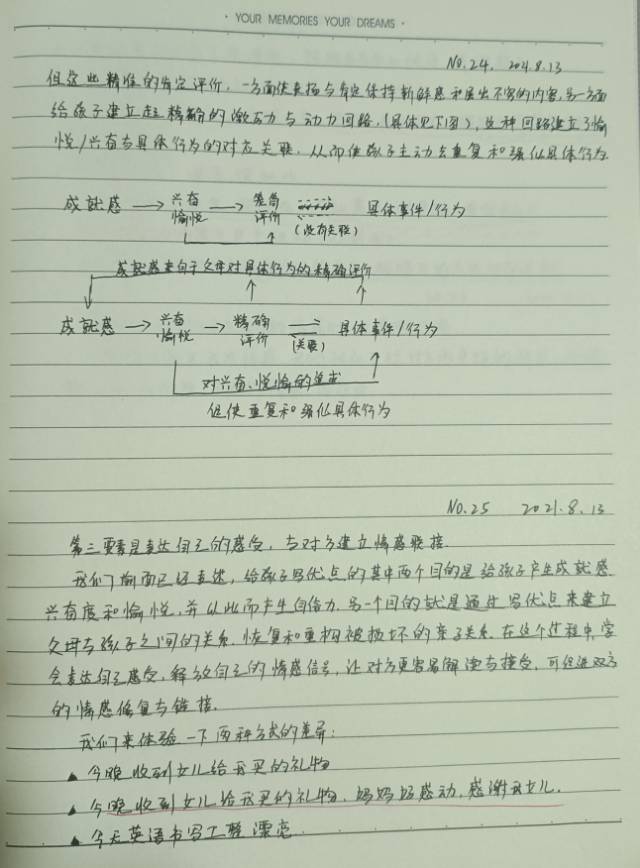 · YOUR MEMORIES YOUR DREAMS ·
No.24. 2021.8.13
但这些精准的肯定评价,一方面使表扬与肯定保持新鲜感和层出不穷的内容,另一方面
给孩子建立起精确的激励力与动力回路.(具体见下图),这种回路建立了愉
悦/兴奋与具体行为的对应关联.从而使孩子主动去重复和强化具体行为.
成就感 → 兴奋 愉悦 → 笼统 评价 具体事件/行为
(没有关联)
成就感来自于父母对具体行为的精确评价
成就感 → 兴奋 愉悦 → 精确 评价 具体事件/行为
(关联)
对兴奋、悦愉的追求
促使重复和强化具体行为
No.25 2021.8.13
第三要素是表达自己的感受,与对方建立情感联接.
我们前面已经表述,给孩子写优点的其中两个目的是给孩子产生成就感
兴奋度和愉悦,并从此而产生自信力.另一个目的就是通过写优点来建立
父母与孩子之间的关系,恢复和重构被损坏的亲子关系.在这个过程中,学
会表达自己感受,释放自己的情感信号,让对方更容易解读与接受,可促进双方
的情感修复与链接.
我们来体验一下两种方式的差异:
▲ 今晚收到女儿给我买的礼物
▲ 今晚收到女儿给我买的礼物,妈妈好感动,感谢我女儿.
▲ 今天英语书写工整漂亮